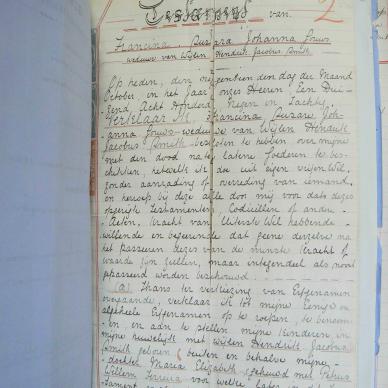 Testament van.
2
Francina Suzara Johanna Fouws
weduwe van Wylen Hendrik Jacobus Smith
Op heden, den negentienden dag der Maand
October in het Jaar onzes Heeren Een Dui-
zend, Acht Honderd Negen en Tachtig
Verklaar Ik Francina Suzara Joh-
anna Fouws weduwe van Wylen Hendrik
Jacobus Smith besloten te hebben over myne
met den dood na te latene Goederen te bes-
chikken, hetwelk ik doe uit eigen vryen Wil,
zonder aanrading of overreding van iemand,
en herroep by deze alle door my voor dato dezes
opgerigte Testamenten, Codicillen of andere
Acten, kracht van Uiterste Wil hebbende
willende en begeerende dat geene derzelve na
het passeeren dezes van de minste kracht of
waarde zyn zullen, maar integendeel als nooit
gepasseerd worden beschouwd.
(a) Thans ter verkiezing van Erfgenamen
overgaande, verklaar ik tot myne Eenige en
algeheele Erfgenamen op te roepen, te benoem-
en en aan te stellen myne Kinderen in
myne huwelyk met wylen Hendrik Jacobus
Smith geboren, buiten en behalve myne
dochter Maria Elizabeth gehuwd met Petrus
Willem Ferreira voor welke